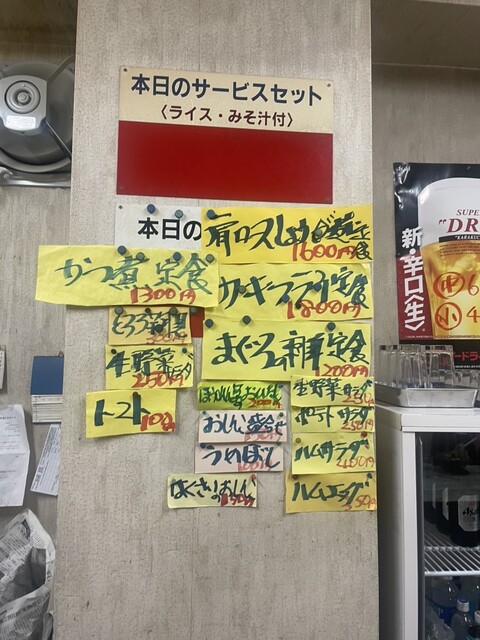 本日のサービスセット
〈ライス・みそ汁付〉
本日の
肩ロースしょうが煮定食
1600円
かつ煮定食
1300円
カキフライ定食
1800円
まぐろ刺身定食
1200円
生野菜サラダ
250円
トマト
100
生野菜サラダ
ポテトサラダ
250円
おしんこ盛合せ
うめぼし
100円
ハムサラダ
400円
はくさいのおしんこ
150円
ハムエッグ
350円
SUPER
"DRY"
新・辛口〈生〉
中 6
小 4